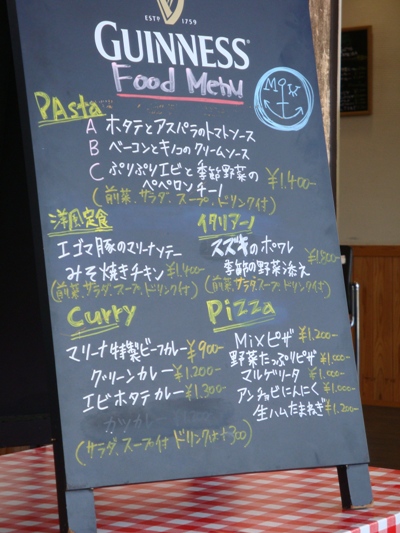 ESTD 1759
GUINNESS
Food Menu
MOW
PAsta
A ホタテとアスパラのトマトソース
B ベーコンとキノコのクリームソース
C ぷりぷりエビと季節野菜の
ペペロンチーノ ¥1.400-
(前菜、サラダ、スープ、ドリンク付)
洋風定食
エゴマ豚のマリーナソテー
みそ焼きチキン ¥1.400-
(前菜、サラダ、スープ、ドリンク付)
イタリアーノ
スズキのポワレ ¥1,500-
季節の野菜添え
(前菜、サラダ、スープ、ドリンク付)
Curry
マリーナ特製ビーフカレー ¥900-
グリーンカレー ¥1.200-
エビホタテカレー ¥1.300-
カツカレー
(サラダ、スープ付 ドリンク付+300)
Pizza
Mixピザ ¥1.200-
野菜たっぷりピザ ¥1.000-
マルゲリータ ¥1.000-
アンチョビにんにく ¥1.000-
生ハムたまねぎ ¥1.200-